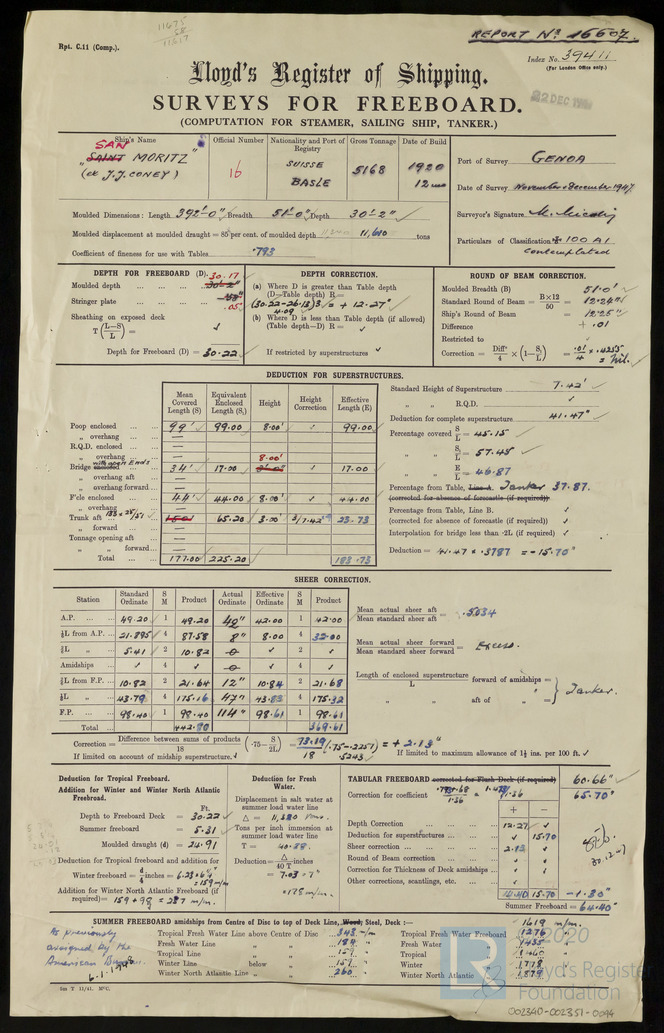 11675
58
11617
REPORT No 16607.
Rpt. C.11 (Comp.).
Index No. 39411
(For London Office only.)
Lloyd's Register of Shipping.
22 DEC
SURVEYS FOR FREEBOARD.
(COMPUTATION FOR STEAMER, SAILING SHIP, TANKER.)
Ship's Name
SAN
"SAINT MORITZ"
(ex J.J. CONEY)
Official Number
16
Nationality and Port of Registry
SUISSE
BASLE
Gross Tonnage
5168
Date of Build
1920
12 mo
Port of Survey GENOA
Date of Survey November-December-1947
Surveyor's Signature
Particulars of Classification +100 A1
contemplated
Moulded Dimensions: Length 392'-0" Breadth 51'-0" Depth 30'-2"
Moulded displacement at moulded draught = 85 per cent. of moulded depth 11,610 tons
Coefficient of fineness for use with Tables .793
DEPTH FOR FREEBOARD (D).
Moulded depth ... ... ... 30.17 30'-2"
Stringer plate ... ... ... .05
Sheathing on exposed deck
T (L-S/L) =
Depth for Freeboard (D) = 30.22
DEPTH CORRECTION.
(a) Where D is greater than Table depth
(D—Table depth) R=
(30.22-26.13)3 = + 12.27"
4.09
(b) Where D is less than Table depth (if allowed)
(Table depth—D) R =
If restricted by superstructures
ROUND OF BEAM CORRECTION.
Moulded Breadth (B) 51.0'
Standard Round of Beam = B×12/50 = 12.24"
Ship's Round of Beam = 12.25"
Difference + .01
Restricted to
Correction = Diff'/4 × (1-S₁/L) = .01/4 × .4255 = Nil.
DEDUCTION FOR SUPERSTRUCTURES.
Mean Covered Length (S) Equivalent Enclosed Length (S₁) Height Height Correction Effective Length (E)
Poop enclosed ... ... 99' 99.00 8.00' 99.00
„ overhang ... ... —
R.Q.D. enclosed ... —
„ overhang ... —
Bridge enclosed with open Ends 34' 17.00 8.00' 8'-0" 17.00
„ overhang aft ... —
„ overhang forward... —
F'cle enclosed ... ... 44' 44.00 8.00' 44.00
„ overhang ...
Trunk aft ... 65.20 3.00' 3/7.42 23.73
„ forward ... ... —
Tonnage opening aft ... —
„ „ forward... —
Total ... ... 177.00 225.20 183.73
Standard Height of Superstructure 7.42'
„ „ R.Q.D.
Deduction for complete superstructure 41.47"
Percentage covered S/L = 45.15
„ „ S₁/L = 57.45
„ „ E/L = 46.87
Percentage from Table, Line A. Tanker 37.87.
(corrected for absence of forecastle (if required))
Percentage from Table, Line B.
(corrected for absence of forecastle (if required))
Interpolation for bridge less than ·2L (if required)
Deduction = 41.47 × .3787 = -15.70"
SHEER CORRECTION.
Station Standard Ordinate S M Product Actual Ordinate Effective Ordinate S M Product
A.P. ... ... 49.20 1 49.20 42" 42.00 1 42.00
⅙L from A.P. ... 21.895 4 87.58 8" 8.00 4 32.00
⅓L „ 5.41 2 10.82 0 2
Amidships ... 4 0 4
⅓L from F.P. ... 10.82 2 21.64 12" 10.84 2 21.68
⅙L „ 43.79 4 175.16 47" 43.83 4 175.32
F.P. ... ... 98.40 1 98.40 114" 98.61 1 98.61
Total ... ... 442.80 369.61
Mean actual sheer aft / Mean standard sheer aft = .5034
Mean actual sheer forward / Mean standard sheer forward = Excess.
Length of enclosed superstructure / L forward of amidships =
„ „ aft of „ = Tanker.
Correction = Difference between sums of products / 18 (·75-S/2L) = 73.19/18 (.75-.2257) = + 2.13"
.5243
If limited on account of midship superstructure.
If limited to maximum allowance of 1½ ins. per 100 ft.
Deduction for Tropical Freeboard.
Addition for Winter and Winter North Atlantic Freeboard.
Ft.
Depth to Freeboard Deck = 30.22
Summer freeboard = 5.31
Moulded draught (d) = 24.91
Deduction for Tropical freeboard and addition for
Winter freeboard = d/4 inches = 6.23 = 6¼"
= 159 m/m
Addition for Winter North Atlantic Freeboard (if
required) =
Deduction for Fresh Water.
Displacement in salt water at summer load water line
Δ = tons.
Tons per inch immersion at summer load water line
T = 40.28.
Deduction = Δ/40 T inches
= 7.03 = 7"
= 178 m/m.
TABULAR FREEBOARD corrected for Flush Deck (if required) 60.66"
Correction for coefficient 1.36 65.70"
+ -
Depth Correction ... ... ... 12.27
Deduction for superstructures ... ... 15.70
Sheer correction ... ... ... 2.13
Round of Beam correction ... ...
Correction for Thickness of Deck amidships ...
Other corrections, scantlings, etc. ...
14.40 15.70 -1.30"
Summer Freeboard = 64.40"
30.12.47
SUMMER FREEBOARD amidships from Centre of Disc to top of Deck Line, Wood, Steel, Deck :— 1619 m/m.
As previously
assigned by the
American Bureau.
6.1.1948
Tropical Fresh Water Line above Centre of Disc ... 343 m/m
Fresh Water Line „ „ ... 184 „
Tropical Line „ „ ... 159 „
Winter Line below „ ... 159 „
Winter North Atlantic Line „ „ ... 260 „
Tropical Fresh Water Freeboard ... 1276 m/m.
Fresh Water „ ... 1435 „
Tropical „ ... 1460 „
Winter „ ... 1778 „
Winter North Atlantic „ ... 1879 „
5m T 11/41. MºC.
© 2020
Lloyd's Register
Foundation
002340-002351-0094